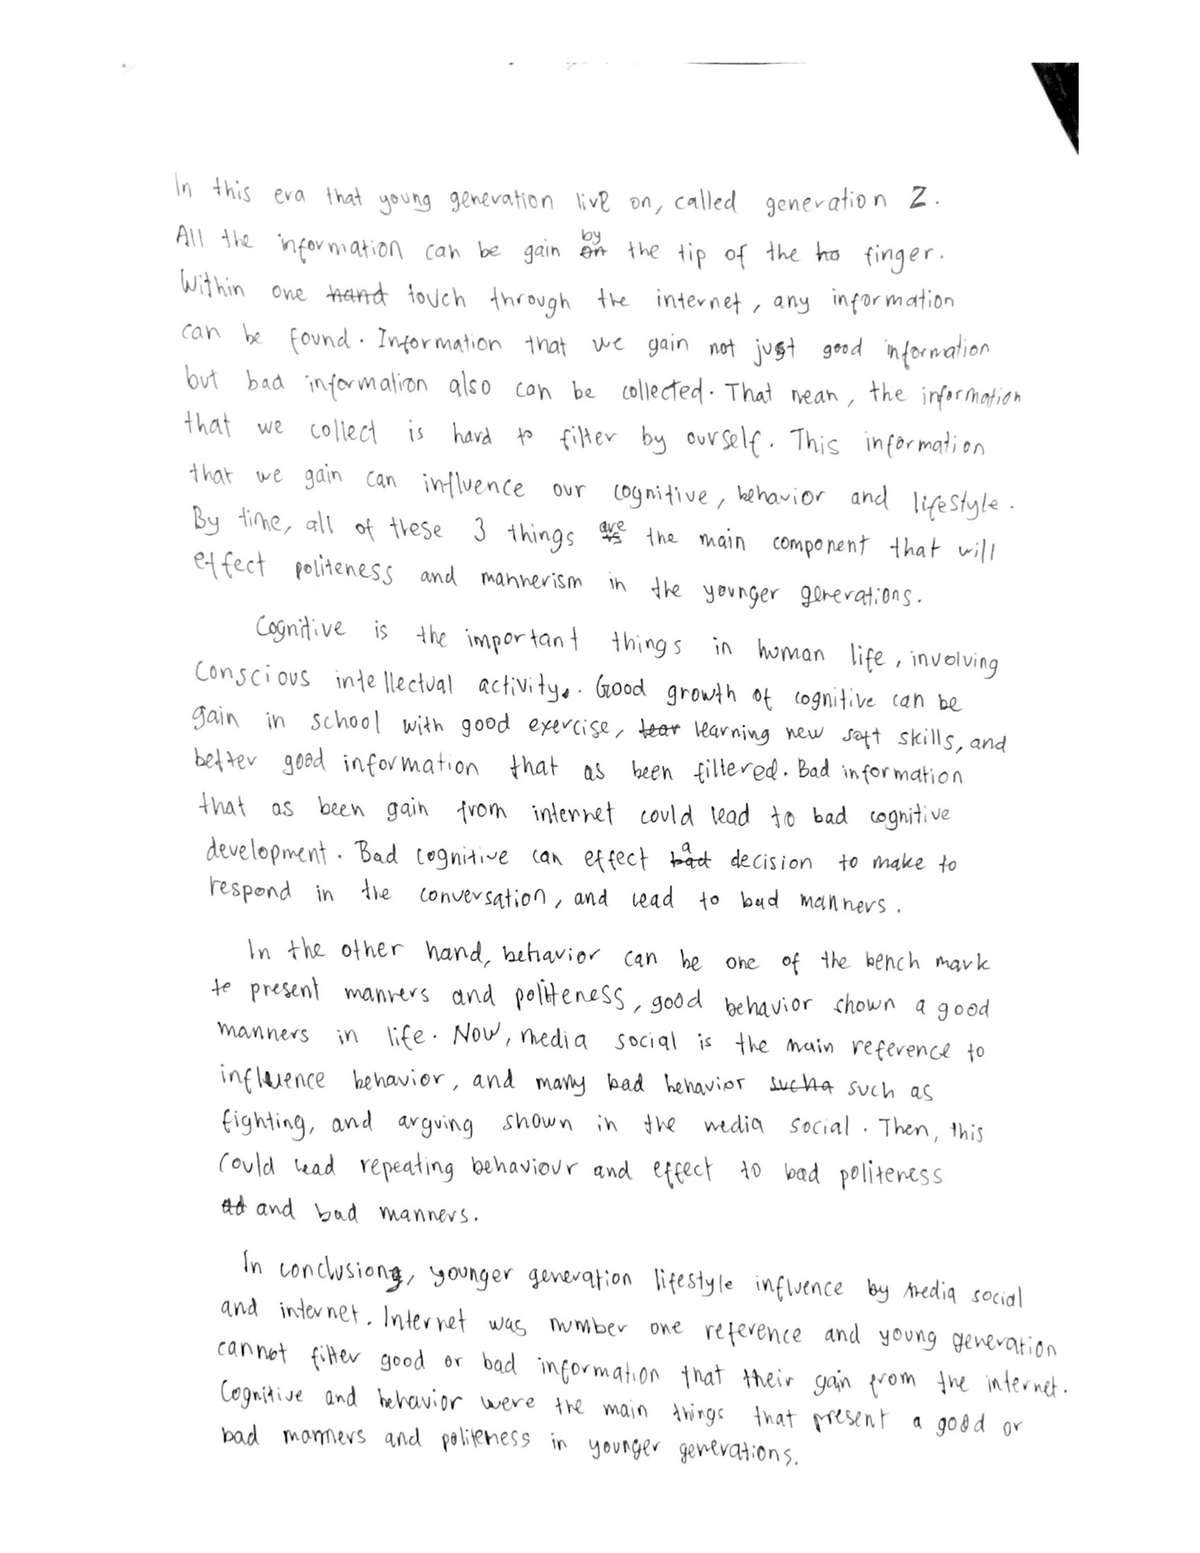 In this era that young generation live on, called generation Z.
All the information can be gain by on the tip of the ho finger.
Within one hand touch through the internet, any information
can be found. Information that we gain not just good information
but bad information also can be collected. That mean, the information
that we collect is hard to filter by ourself. This information
that we gain can influence our cognitive, behavior and lifestyle.
By time, all of these 3 things are is the main component that will
effect politeness and mannerism in the younger generations.
Cognitive is the important things in human life, involving
conscious intellectual activity. Good growth of cognitive can be
gain in school with good exercise, lear learning new soft skills, and
better good information that as been filtered. Bad information
that as been gain from internet could lead to bad cognitive
development. Bad cognitive can effect a bad decision to make to
respond in the conversation, and lead to bad manners.
In the other hand, behavior can be one of the bench mark
to present manners and politeness, good behavior shown a good
manners in life. Now, media social is the main reference to
influence behavior, and many bad behavior sucha such as
fighting, and arguing shown in the media social. Then, this
could lead repeating behaviour and effect to bad politeness
ad and bad manners.
In conclusion, younger generation lifestyle influence by media social
and internet. Internet was number one reference and young generation
cannot filter good or bad information that their gain from the internet.
Cognitive and behavior were the main things that present a good or
bad manners and politeness in younger generations.